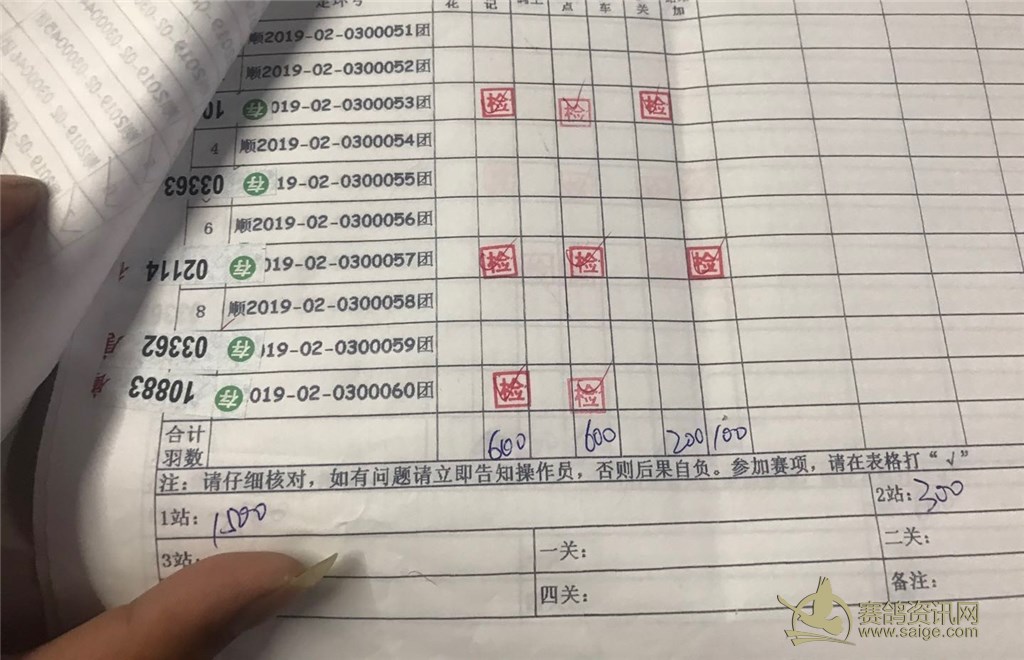 足环号 花 记 点 车 关 加
顺2019-02-0300051团
顺2019-02-0300052团
10 存 019-02-0300053团 检 检 检
4 顺2019-02-0300054团
03363 存 19-02-0300055团
6 顺2019-02-0300056团
02114 存 019-02-0300057团 检 检 检
8 顺2019-02-0300058团
03362 存 019-02-0300059团
10883 存 019-02-0300060团 检 检
合计羽数 600 600 200 100
注：请仔细核对，如有问题请立即告知操作员，否则后果自负。参加赛项，请在表格打“√”
1站：1500 2站：300
3站： 一关： 二关：
四关： 备注：
赛鸽资讯网
www.saige.com